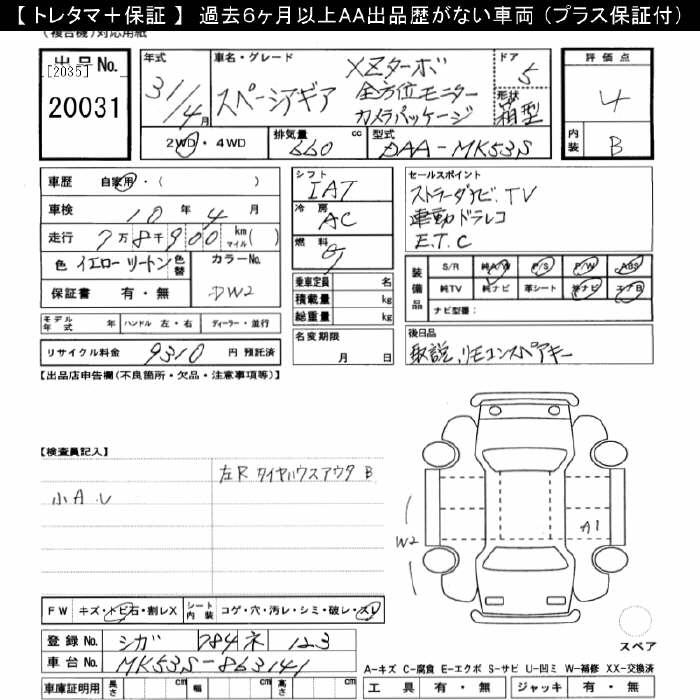 【 トレタマ＋保証 】 過去６ヶ月以上ＡＡ出品歴がない車両（プラス保証付）
（複合機）対応用紙
出品No.
[2035]
20031
年式
31/4月
車名・グレード
スペーシアギア
XZターボ
全方位モニター
カメラパッケージ
ドア
5
形状
箱型
2WD・4WD
排気量
660 cc
型式
DAA-MK53S
評価点
4
内装
B
車歴 自家用・（ ）
車検 10年 4月
走行 7万8千900 km マイル( )
色 イエローツートン 色替
カラーNo.
DW2
保証書 有・無
モデル年式 年 ハンドル 左・右 ディーラー・並行
リサイクル料金 9310 円 預託済
シフト
IAT
冷房
AC
燃料
乗車定員 名
積載量 kg
総重量 kg
名変期限
月 日
セールスポイント
ストラーダナビ.TV
連動ドラレコ
E.T.C
装備品 S/R 純A/W P/S P/W ABS
純TV 純ナビ 革シート 社ナビ エアB
ナビ型番：
後日品
取説,リモコンスペアキー
【出品店申告欄(不良箇所・欠品・注意事項等)】
【検査員記入】
左R タイヤハウスアウタ B
小A.U
W2
A1
FW キズ・トビ石・割レX シート内装 コゲ・穴・汚レ・シミ・破レ・スレ
登録No. シガ 784 ネ 123
車台No. MK53S-863141
車庫証明用 長さ cm 幅 cm 高さ cm
スペア
A-キズ C-腐食 E-エクボ S-サビ U-凹ミ W-補修 XX-交換済
工具 有・無 ジャッキ 有・無